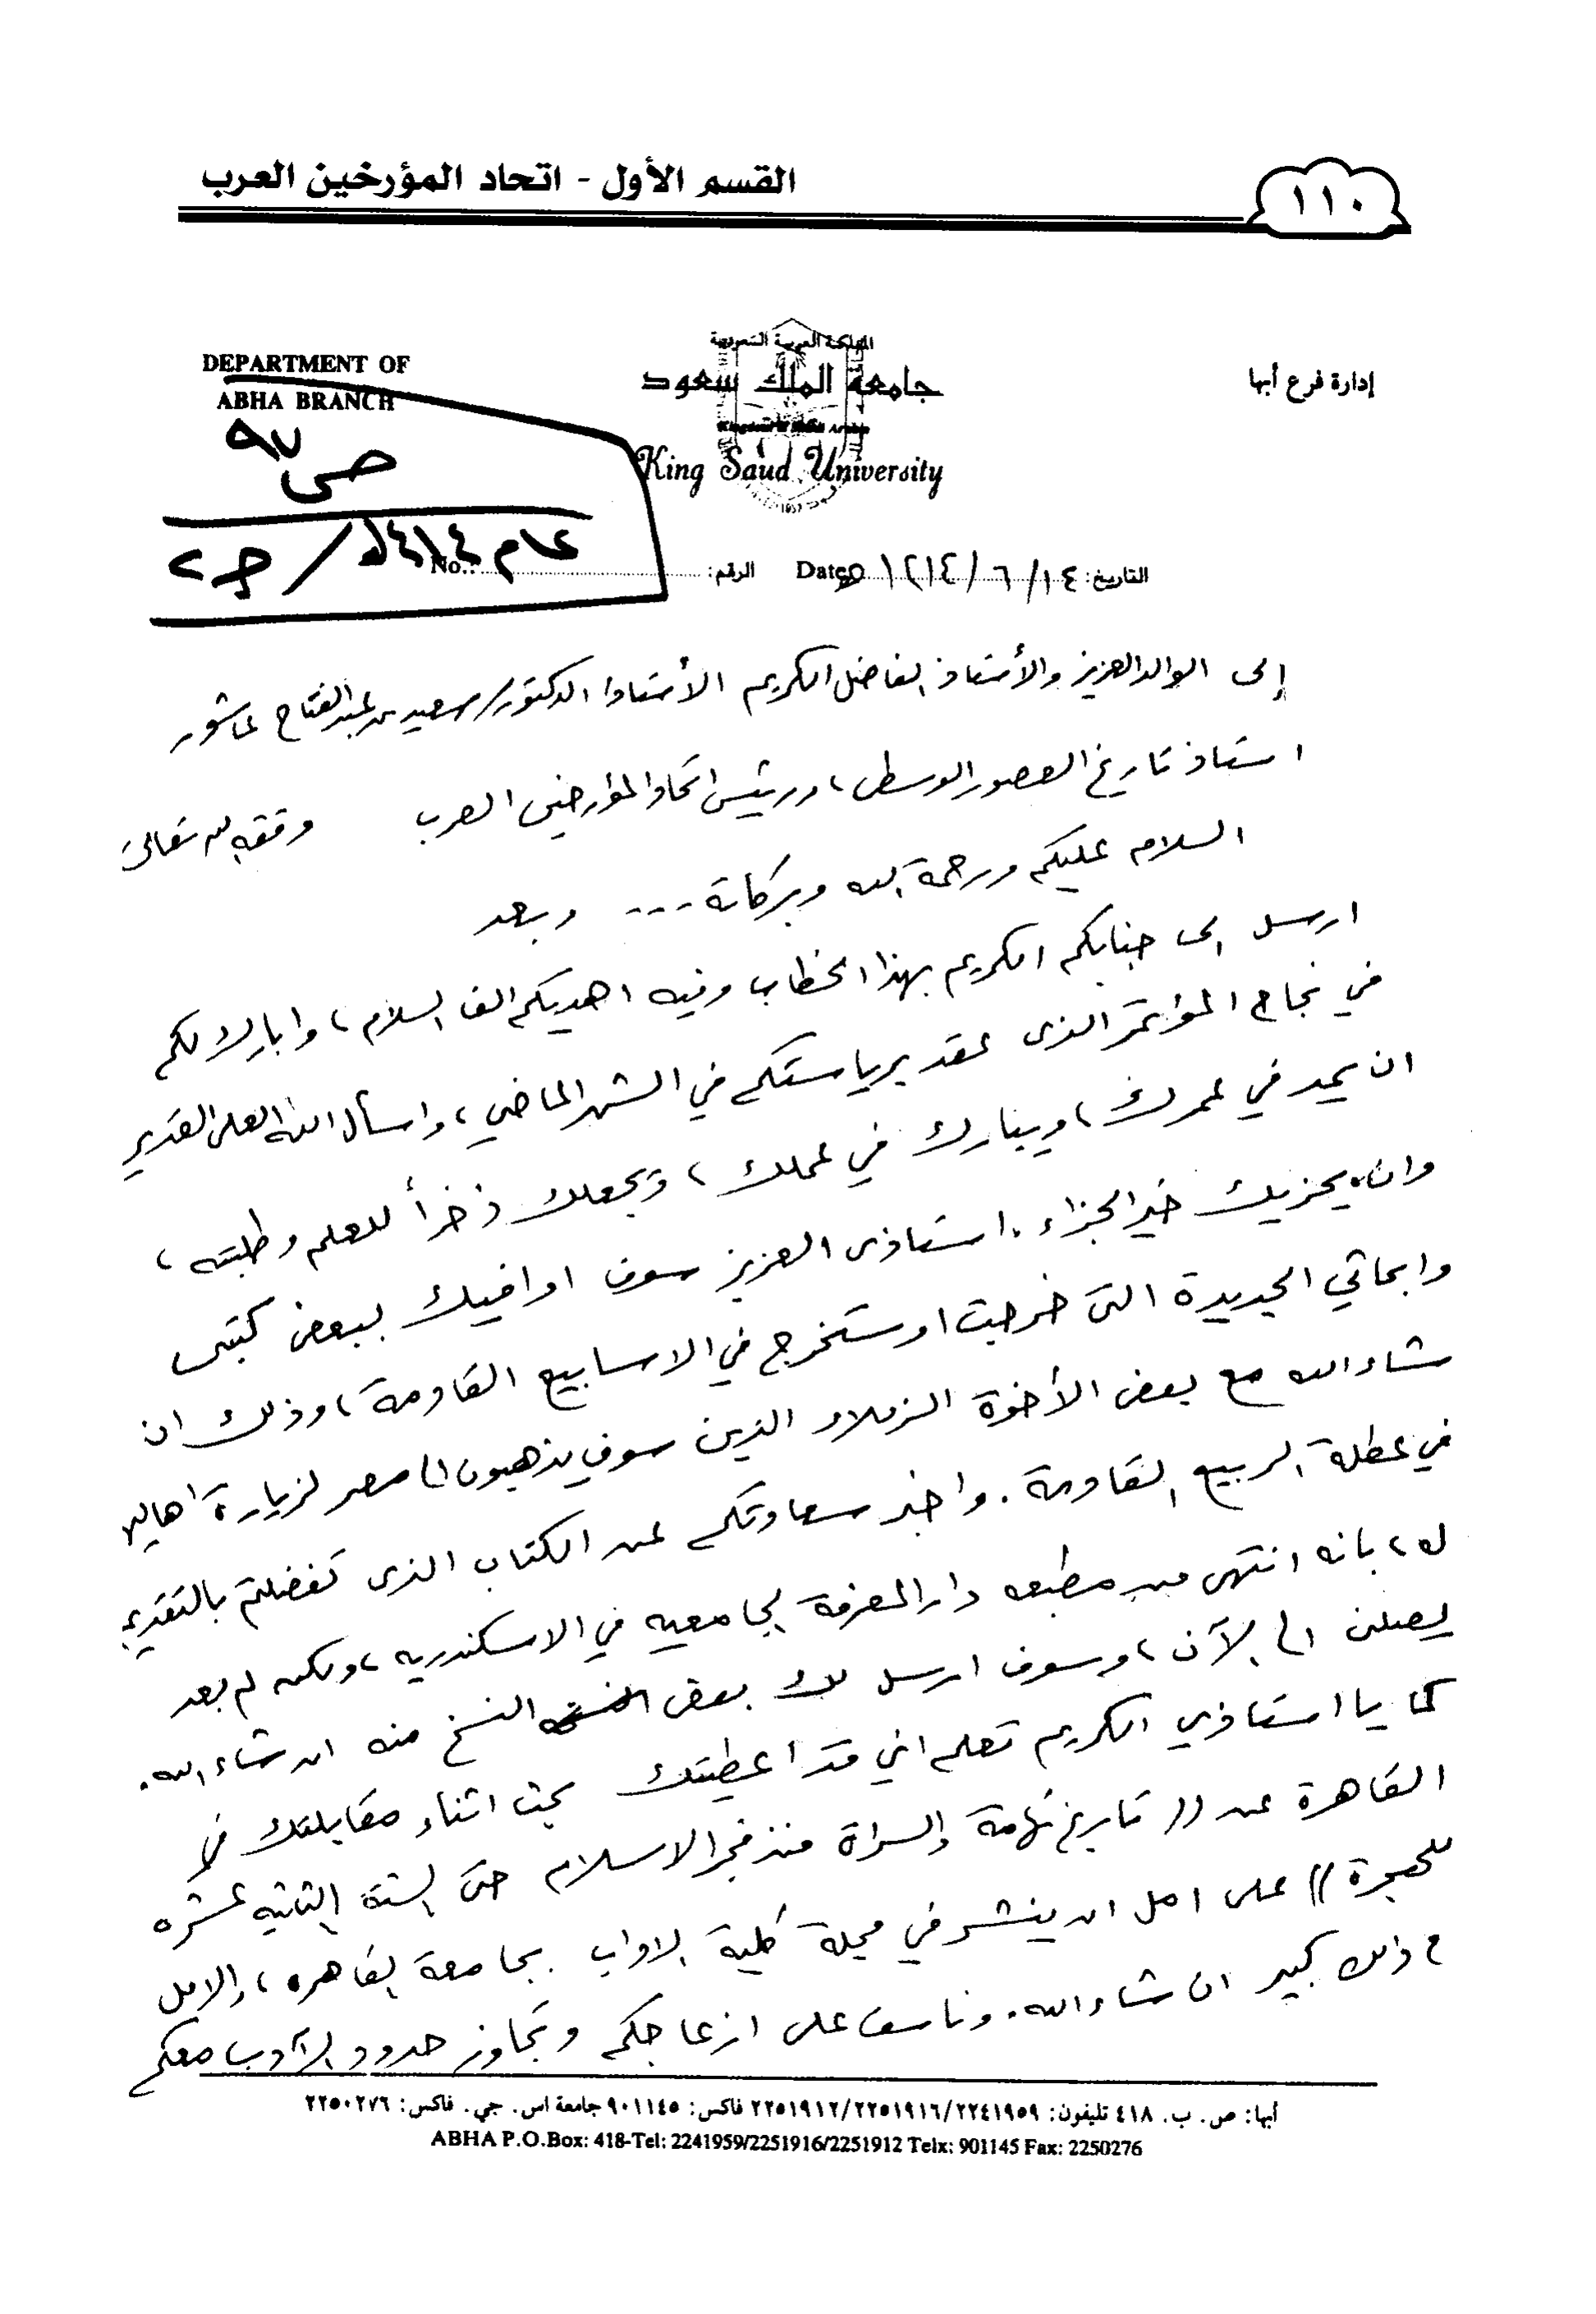 القسم الأول - اتحاد المؤرخين العرب
١١٠
DEPARTMENT OF
ABHA BRANCH
المملكة العربية السعودية
جامعة الملك سعود
Kingdom of Saudi Arabia
King Saud University
1957
إدارة فرع أبها
ص ٩٧
عام ١٤١٤هـ / جـ ٢
التاريخ: ١٤/ ٦ /١٤١٤هـ Date الرقم: No.:
إلى الوالد العزيز والأستاذ الفاضل الكريم الأستاذ الدكتور/ سعيد بن عبد الفتاح عاشور
استاذ تاريخ العصور الوسطى، ورئيس اتحاد المؤرخين العرب وفقه الله تعالى
السلام عليكم ورحمة الله وبركاته --- وبعد
ارسل إلى جنابكم الكريم بهذا الخطاب وفيه اهديكم الف السلام، وابارك لكم
في نجاح المؤتمر الذي عقد برياستكم في الشهر الماضي، واسأل الله العلى القدير
ان يمد في عمرك، ويبارك في عملك، ويجعلك ذخراً للعلم وطلبته،
وان يجزيك خير الجزاء. استاذى العزيز سوف اوافيك ببعض كتبى
وابحاثي الجديدة التى خرجت او ستخرج في الاسابيع القادمة، وذلك ان
شاء الله مع بعض الأخوة الزملاء الذين سوف يذهبون الى مصر لزيارة اهاليهم
في عطلة الربيع القادمة. واخبر سعادتكم عن الكتاب الذى تفضلتم بالتقديم
له، بانه انتهى من مطبعه دار المعرفة الجامعيه في الاسكندريه، ولكنه لم بعد
يصلنى الى الآن، وسوف ارسل لك بعض النسخ منه ان شاء الله.
كما يا استاذي الكريم تعلم اني قد اعطيتك بحث اثناء مقابلتك في
القاهرة عن (( تاريخ تهامة والسراة منذ فجر الاسلام حتى السنة الثانيه عشره
للهجرة)) على امل ان ينشر في مجلة كلية الاداب بجامعة القاهره، والامل
م ذلك كبير ان شاء الله. ونأسف على ازعاجكم وتجاوز حدود الادب معكم
أبها: ص. ب. ٤١٨ تليفون: ٢٢٥١٩١٢/٢٢٥١٩١٦/٢٢٤١٩٥٩ فاكس: ٩٠١١٤٥ جامعة اس. جي. فاكس: ٢٢٥٠٢٧٦
ABHA P.O.Box: 418-Tel: 2241959/2251916/2251912 Telx: 901145 Fax: 2250276